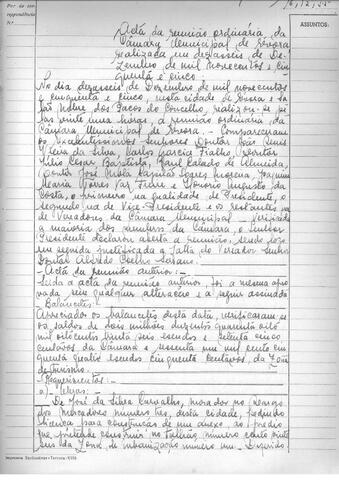 Por da cor-
respondência
N.º
16/12/55
ASSUNTOS:
Acta da reunião ordinária da
Câmara Municipal de Évora
realizada em dezasseis de De-
zembro de mil novecentos e cin-
quenta e cinco.
No dia dezasseis de Dezembro de mil novecentos
e cinquenta e cinco, nesta cidade de Évora e Sa-
la Nobre dos Paços do Concelho, realizou-se
vinte uma horas, a reunião ordinária da
Câmara Municipal de Évora. - Compareceram
os Excelentíssimos Senhores Doutor Luís
Vieira da Silva, Carlos Garcia Fialho,
Júlio César Baptista, Raul de Almeida,
Doutor José Lopes Moreira, Joaquim
Maria Freire e Honório Augusto da
Costa, o primeiro na qualidade de Presidente, o
segundo na de Vice-Presidente e os restantes na
de Vereadores da Câmara Municipal. - Verificada
a maioria dos membros da Câmara, o Senhor
Presidente declarou aberta a reunião, sendo
em seguida justificada a falta do Vereador Senhor
Doutor Alberto Coelho
- Acta da reunião anterior: -
Lida a acta da reunião anterior, foi a mesma apro-
vada sem qualquer alteração e a seguir assinada.
- Balancetes:
Apreciados os balancetes desta data, verificaram-se
os saldos de dois milhões duzentos quarenta oito
mil oitocentos trinta seis escudos e setenta cinco
centavos da Câmara e sessenta um mil cento cin-
quenta quatro escudos cinquenta centavos, da Zona
de Turismo.
- Requerimentos: -
a) - Obras: -
De José da Silva Carvalho, morador no Largo
dos Mercadores número três, desta cidade, pedindo
licença para construção de um anexo, ao prédio
que pretende construir no talhão número cento vinte
seis da Zona de urbanização número um. - Deferido